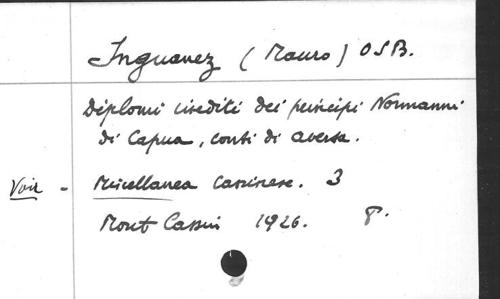 Inguanez (Mauro) OSB.
Diplomi inediti dei principi Normanni
di Capua, conti di Aversa.
Voir - Miscellanea Cassinese. 3
Mont Cassin 1926. 8°.